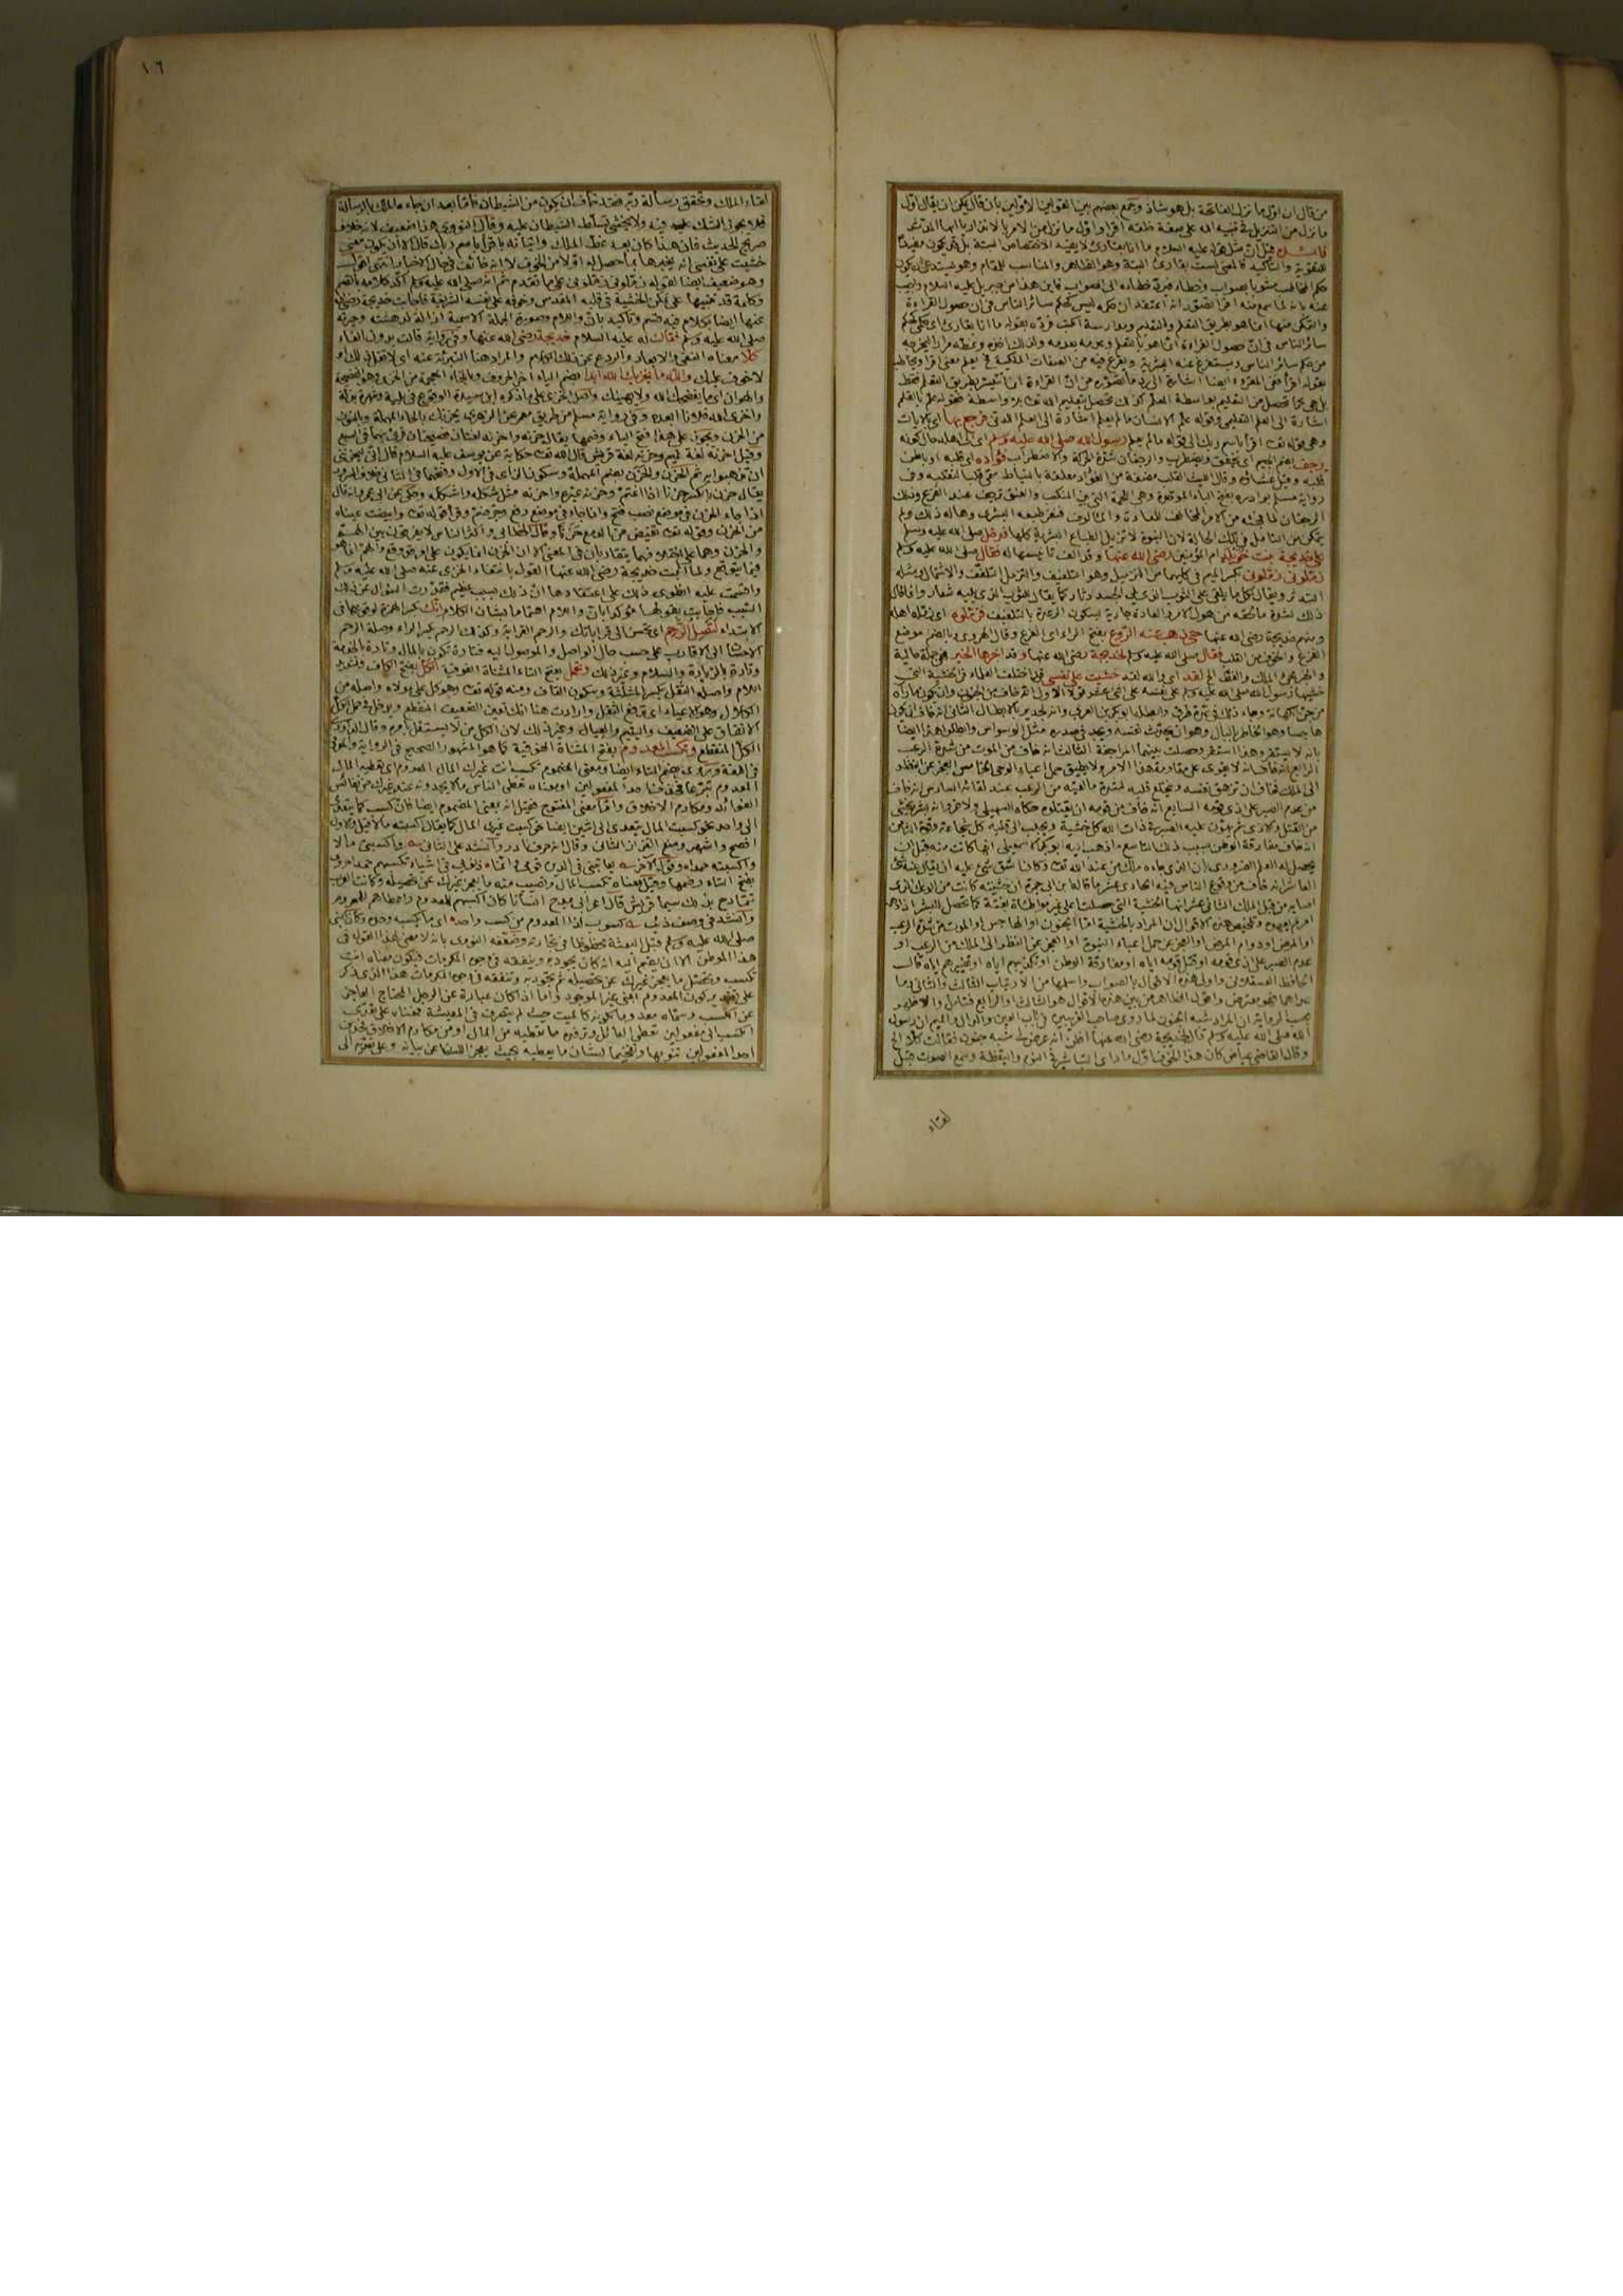 من قال ان اول ما نزل الفاتحة بل هو شاذ وجمع بعضهم بين القولين الاولين بان قال يمكن ان يقال اول
ما نزل من التنزيل في تنبيه الله على صفة خلقه اقرا واول ما نزل من الامر بالانذار يا ايها المدثر
فائدة قيل ان مثل قوله عليه السلام ما انا بقارئ لا يفيد الاختصاص البتة بل قد يكون مفيدا
للتقوية والتأكيد فالمعنى لست بقارئ البتة وهو الظاهر والمناسب للمقام
عنه بانه لما سمع منه اقرا تصور انه اعتقد ان حكمه ليس كحكم سائر الناس في ان حصول القراءة
والتمكن منها انما هو بطريق التعلم والتعليم ومدارسة الكتب فرده بقوله ما انا بقارئ اى حكمى كحكم
سائر الناس في ان حصول القراءة انما هو بالتعلم وعدمه بعدمه ولذلك اخذه وغطه مرارا ليخرجه
من حكم سائر الناس ويستفرغ منه البشرية ويفرغ فيه من الصفات الملكية
بقوله اقرأ
بل هى كما تحصل من التعليم بواسطة المعلم كذلك تحصل بتعليم الله تعالى بلا واسطة فقوله علم بالقلم
اشارة الى العلم التعليمى وقوله علم الانسان ما لم يعلم اشارة الى العلم اللدنى فرجع بها اى بالايات
وهى قوله تعالى اقرأ باسم ربك الى قوله ما لم يعلم رسول الله صلى الله عليه وسلم اى الى اهله حال كونه
يرجف بضم الجيم اى يخفق ويضطرب والرجفان شدة الحركة والاضطراب فؤاده اى قلبه او باطن
قلبه وقيل غشاؤه وقال الليث القلب مضغة من الفؤاد معلقة بالنياط سمى قلبا لتقلبه وفي
رواية مسلم بوادره بفتح الباء الموحدة وهى اللحمة التى بين المنكب والعنق ترجف عند الفزع وذلك
الرجفان لما فجئه من الامر المخالف للعادة والمألوف فنفر طبعه البشرى وهاله ذلك ولم
يتمكن من التأمل في تلك الحالة لان النبوة لا تزيل الطباع البشرية كلها فدخل صلى الله عليه وسلم
على خديجة بنت خويلد ام المؤمنين رضى الله عنها فقال صلى الله عليه وسلم
زملونى زملونى بكسر الميم في كليهما من التزميل وهو التلفيف والتزمل التلفف والاشتمال ومثله
ذلك لشدة ما لحقه من هول الامر والعادة جارية بسكون الرعدة بالتلفيف فزملوه اى زمله اهله
ومنهم خديجة رضى الله عنها حتى ذهب عنه الروع بفتح الراء اى الفزع وقال الهروى وبالضم موضع
الفزع والخوف من القلب فقال صلى الله عليه وسلم لخديجة رضى الله عنها وقد اخبرها الخبر هى جملة حالية
لقد اى والله لقد خشيت على نفسى قد اختلف العلماء في الخشية التى
خشيها رسول الله صلى الله عليه وسلم على نفسه على اثنى عشر قولا الاول انه خاف من الجنون وان يكون ما رآه
من جنس الكهانة وجاء ذلك في عدة طرق وابطله ابو بكر بن العربى وانه لجدير بالابطال الثانى انه خاف ان يكون
هاجسا وهو الخاطر بالبال وهو ان يحدث نفسه ويجد في صدره مثل الوسواس وابطلوا هذا ايضا
بانه لا يستقر وهذا استقر وحصلت بينهما المراجعة الثالث انه خاف من الموت من شدة الرعب
الرابع انه خاف انه لا يقوى على مقاومة هذا الامر ولا يطيق حمل اعباء الوحى الخامس العجز عن النظر
الى الملك فخاف ان تزهق نفسه وينخلع قلبه لشدة ما لقيه من الرعب عند لقائه السادس انه خاف
من عدم الصبر على اذى قومه السابع انه خاف من قومه ان يقتلوه حكاه السهيلى ولا غرو انه بشر يخشى
من القتل والاذى ثم يهون عليه الصبر في ذات الله كل خشية ويجلب الى قلبه كل شجاعة وقوة الثامن
انه خاف مفارقة الوطن بسبب ذلك التاسع ما ذهب اليه ابو بكر الاسماعيلى انها كانت منه قبل ان
يحصل له العلم الضرورى بان الذى جاءه ملك من عند الله تعالى وكان اشق شئ عليه ان يقال عنه شئ
العاشر انه خاف من وقوع الناس فيه الحادى عشر ما قاله ابن ابى جمرة ان خشيته كانت من الوعك الذى
اصابه من قبل الملك الثانى عشر انها الخشية التى حصلت على غير مواطئة بغتة كما تحصل للبشر اذا دهمه
امر لم يعهده وتلخيص هذه الاقوال ان المراد بالخشية اما الجنون او الهاجس او الموت من شدة الرعب
او المرض او دوام المرض او العجز عن حمل اعباء النبوة او العجز عن النظر الى الملك من الرعب او
عدم الصبر على اذى قومه او قتل قومه اياه او مفارقة الوطن او تكذيبهم اياه او تعييرهم اياه قال
الحافظ العسقلانى واولى هذه الاقوال بالصواب واسلمها من الارتياب الثالث والثانى وما
عداهما فهو معترض
الله صلى الله عليه وسلم قال لخديجة رضى الله عنها اظن انه عرض لى شبه جنون فقالت كلا الخ
وقال القاضى عياض كان هذا الخوف اول ما رأى التباشير في النوم واليقظة وسمع الصوت قبل
لقاء
١٦
لقاء الملك وتحقق رسالة ربه فقد خاف ان يكون من الشيطان فاما بعد ان جاءه الملك بالرسالة
فلا يجوز الشك عليه فيه ولا يخشى تسلط الشيطان عليه وقال النووى هذا ضعيف لانه خلاف
صريح الحديث فان هذا كان بعد غط الملك واتيانه باقرأ باسم ربك قال الا ان يكون معنى
خشيت على نفسى انه يخبرها بما حصل له اولا من الخوف لا انه خائف في حال الاخبار
وهو ضعيف ايضا لقوله زملونى زملونى على ما تقدم ثم انه صلى الله عليه وسلم اكد كلامه
وكلمة قد تنبيها على تمكن الخشية في قلبه المقدس وخوفه على نفسه الشريفة فاجابت خديجة رضى الله
عنها ايضا بكلام فيه قسم وتأكيد بان واللام وصورة الجملة الاسمية ازالة لدهشته وحيرته
صلى الله عليه وسلم فقالت له عليه السلام خديجة رضى الله عنها وفي رواية قالت بدون الفاء
كلا معناه النفى والابعاد والردع عن ذلك الكلام والمراد هنا التنزيه عنه اى لا تقل ذلك او
لا خوف عليك والله ما يخزيك الله ابدا بضم الياء اخر الحروف وبالخاء المعجمة من الخزى وهو الفضيحة
والهوان اى ما يفضحك الله ولا يهينك واصل الخزى على ما ذكره ابن سيدة الوقوع في بلية وشهرة بذلة
واخزى الله فلانا ابعده وفي رواية مسلم من طريق معمر عن الزهرى يحزنك بالحاء المهملة وبالنون
من الحزن ويجوز على هذا فتح الياء وضمها يقال حزنه واحزنه لغتان فصيحتان قرئ بهما في السبع
وقيل احزنه لغة تميم وحزنه لغة قريش قال الله تعالى حكاية عن يوسف عليه السلام قال انى ليحزننى
ان تذهبوا به ثم الحزن والحزن بضم المهملة وسكون الزاى في الاول وفتحهما في الثانى خلاف السرور
يقال حزن بالكسر حزنا اذا اغتم وحزنه غيره واحزنه مثل شكله واشكله وحكى عن ابى عمرو انه قال
اذا جاء الحزن في موضع نصب فتح واذا جاء في موضع رفع وجر ضم وقرأ قوله تعالى وابيضت عيناه
من الحزن وقوله تعالى تفيض من الدمع حزنا وقال الخطابى واكثر الناس لا يفرقون بين الهم
والحزن وهما على اختلافهما يتقاربان في المعنى الا ان الحزن انما يكون على امر قد وقع والهم انما هو
فيما يتوقع ولما اثبتت خديجة رضى الله عنها القول بانتفاء الخزى عنه صلى الله عليه وسلم
واقسمت عليه انطوى ذلك على اعتقادها ان ذلك بسبب عظيم فقدرت السؤال عن ذلك
السبب فاجابت بقولها مؤكدا بان واللام اهتماما بشان الكلام انك بكسر الهمزة لوقوعها في
الابتداء لتصل الرحم اى تحسن الى قراباتك والرحم القرابة وكذلك الرحم بكسر الراء وصلة الرحم
الاحسان الى الاقارب على حسب حال الواصل والموصول اليه فتارة تكون بالمال وتارة بالخدمة
وتارة بالزيارة والسلام وغير ذلك وتحمل بفتح التاء المثناة الفوقية الكل بفتح الكاف وتشديد
اللام واصله الثقل بكسر المثلثة وسكون القاف ومنه قوله تعالى وهو كل على مولاه واصله من
الكلال وهو الاعياء اى ترفع الثقل وارادت هنا انك تعين الضعيف المنقطع ويدخل في حمل الكل
الانفاق على الضعيف واليتيم والعيال وغير ذلك لان الكل من لا يستقل بامره وقال الداودى
الكل المنقطع وتكسب المعدوم بفتح المثناة الفوقية كما هو المشهور الصحيح في الرواية والمعروف
في اللغة وروى بضم التاء ايضا ومعنى المضموم تكسب غيرك المال المعدوم اى تعطيه المال
المعدوم تبرعا فحذف احد المفعولين او معناه تعطى الناس ما لا يجدونه عند غيرك من نفائس
الفوائد ومكارم الاخلاق واما معنى المفتوح فقيل انه بمعنى المضموم ايضا فان كسب كما يتعدى
الى واحد نحو كسبت المال يتعدى الى اثنين ايضا نحو كسبت غيرى المال كما يقال اكسبته مالا قيل والاول
افصح واشهر ومنع القزاز الثانى وقال انه حرف نادر وانشد على الثانى واكسبنى مالا
واكسبته حمدا وقول الاخر يعاتبنى في الدين قومى وانما ديونى في اشياء تكسبهم حمدا روى
بفتح التاء وضمها وقيل معناه تكسب المال وتصيب منه ما يعجز غيرك عن تحصيله وكانت العرب
تتمادح بذلك سيما قريش قال اعرابى يمدح انسانا كان اكسبهم لمعدوم واعطاهم لمحروم
وانشد في وصف ذئب كسوب لذا المعدوم من كسب واحد اى ما يكسبه وحده وكان النبى
صلى الله عليه وسلم قبل البعثة محظوظا في تجارته وضعفه النووى بانه لا معنى لهذا القول في
هذا الموطن الا ان يضم اليه انه كان يجود به وينفقه في وجوه المكرمات فيكون معناه انت
تكسب وتحصل ما يعجز غيرك عن تحصيله ثم تجود به وتنفقه في وجوه المكرمات هذا الذى ذكر
على تقدير كون المعدوم اعنى غير الموجود واما اذا كان عبارة عن الرجل المحتاج العاجز
عن الكسب وسماه معدوما لكونه كالميت حيث لم يتصرف في المعيشة فمعناه على تقدير
الكسب الى مفعولين تعطى العائل وترفده ما تعطيه من المال او من مكارم الاخلاق فحذف
احد المفعولين تنويها وتفخيما لشان ما يعطيه بحيث يعجز اللسان عن بيانه وعلى تقدير الى